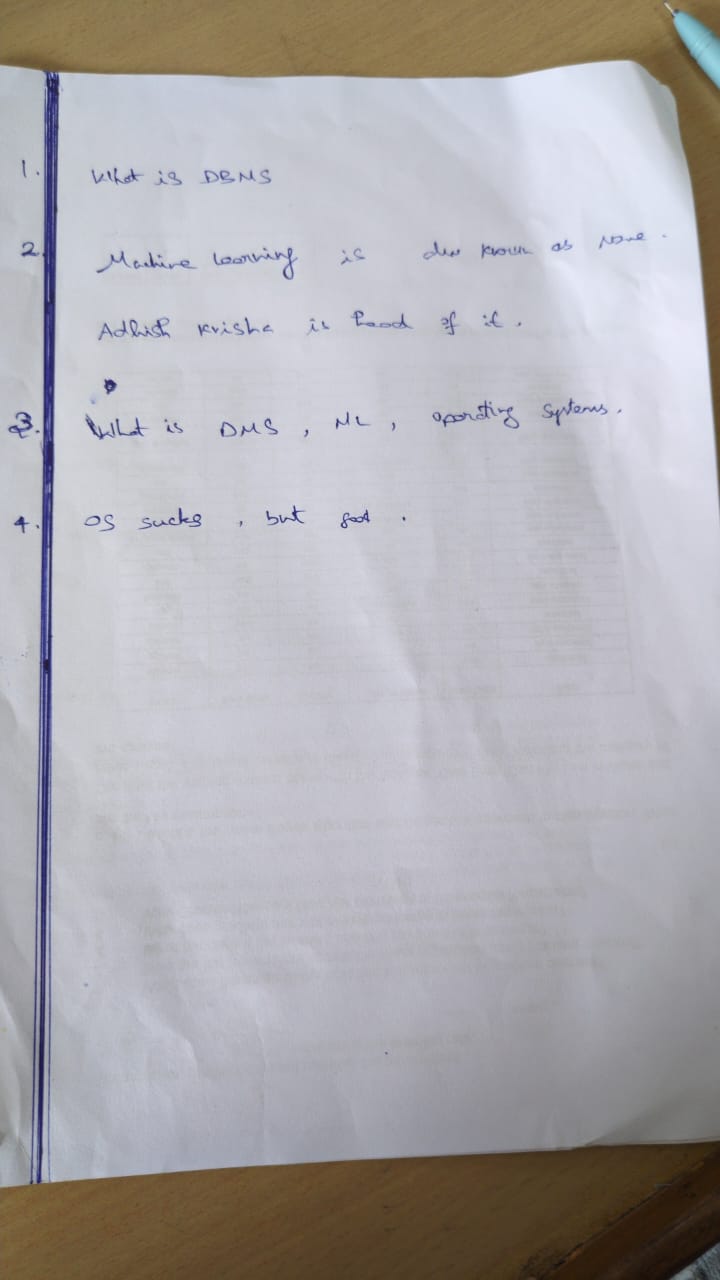 1. What is DBMS
2. Machine learning is known as None.
Adhish Krisha is head of it.
3. What is DMS, ML, operating systems.
4. OS sucks, but good.